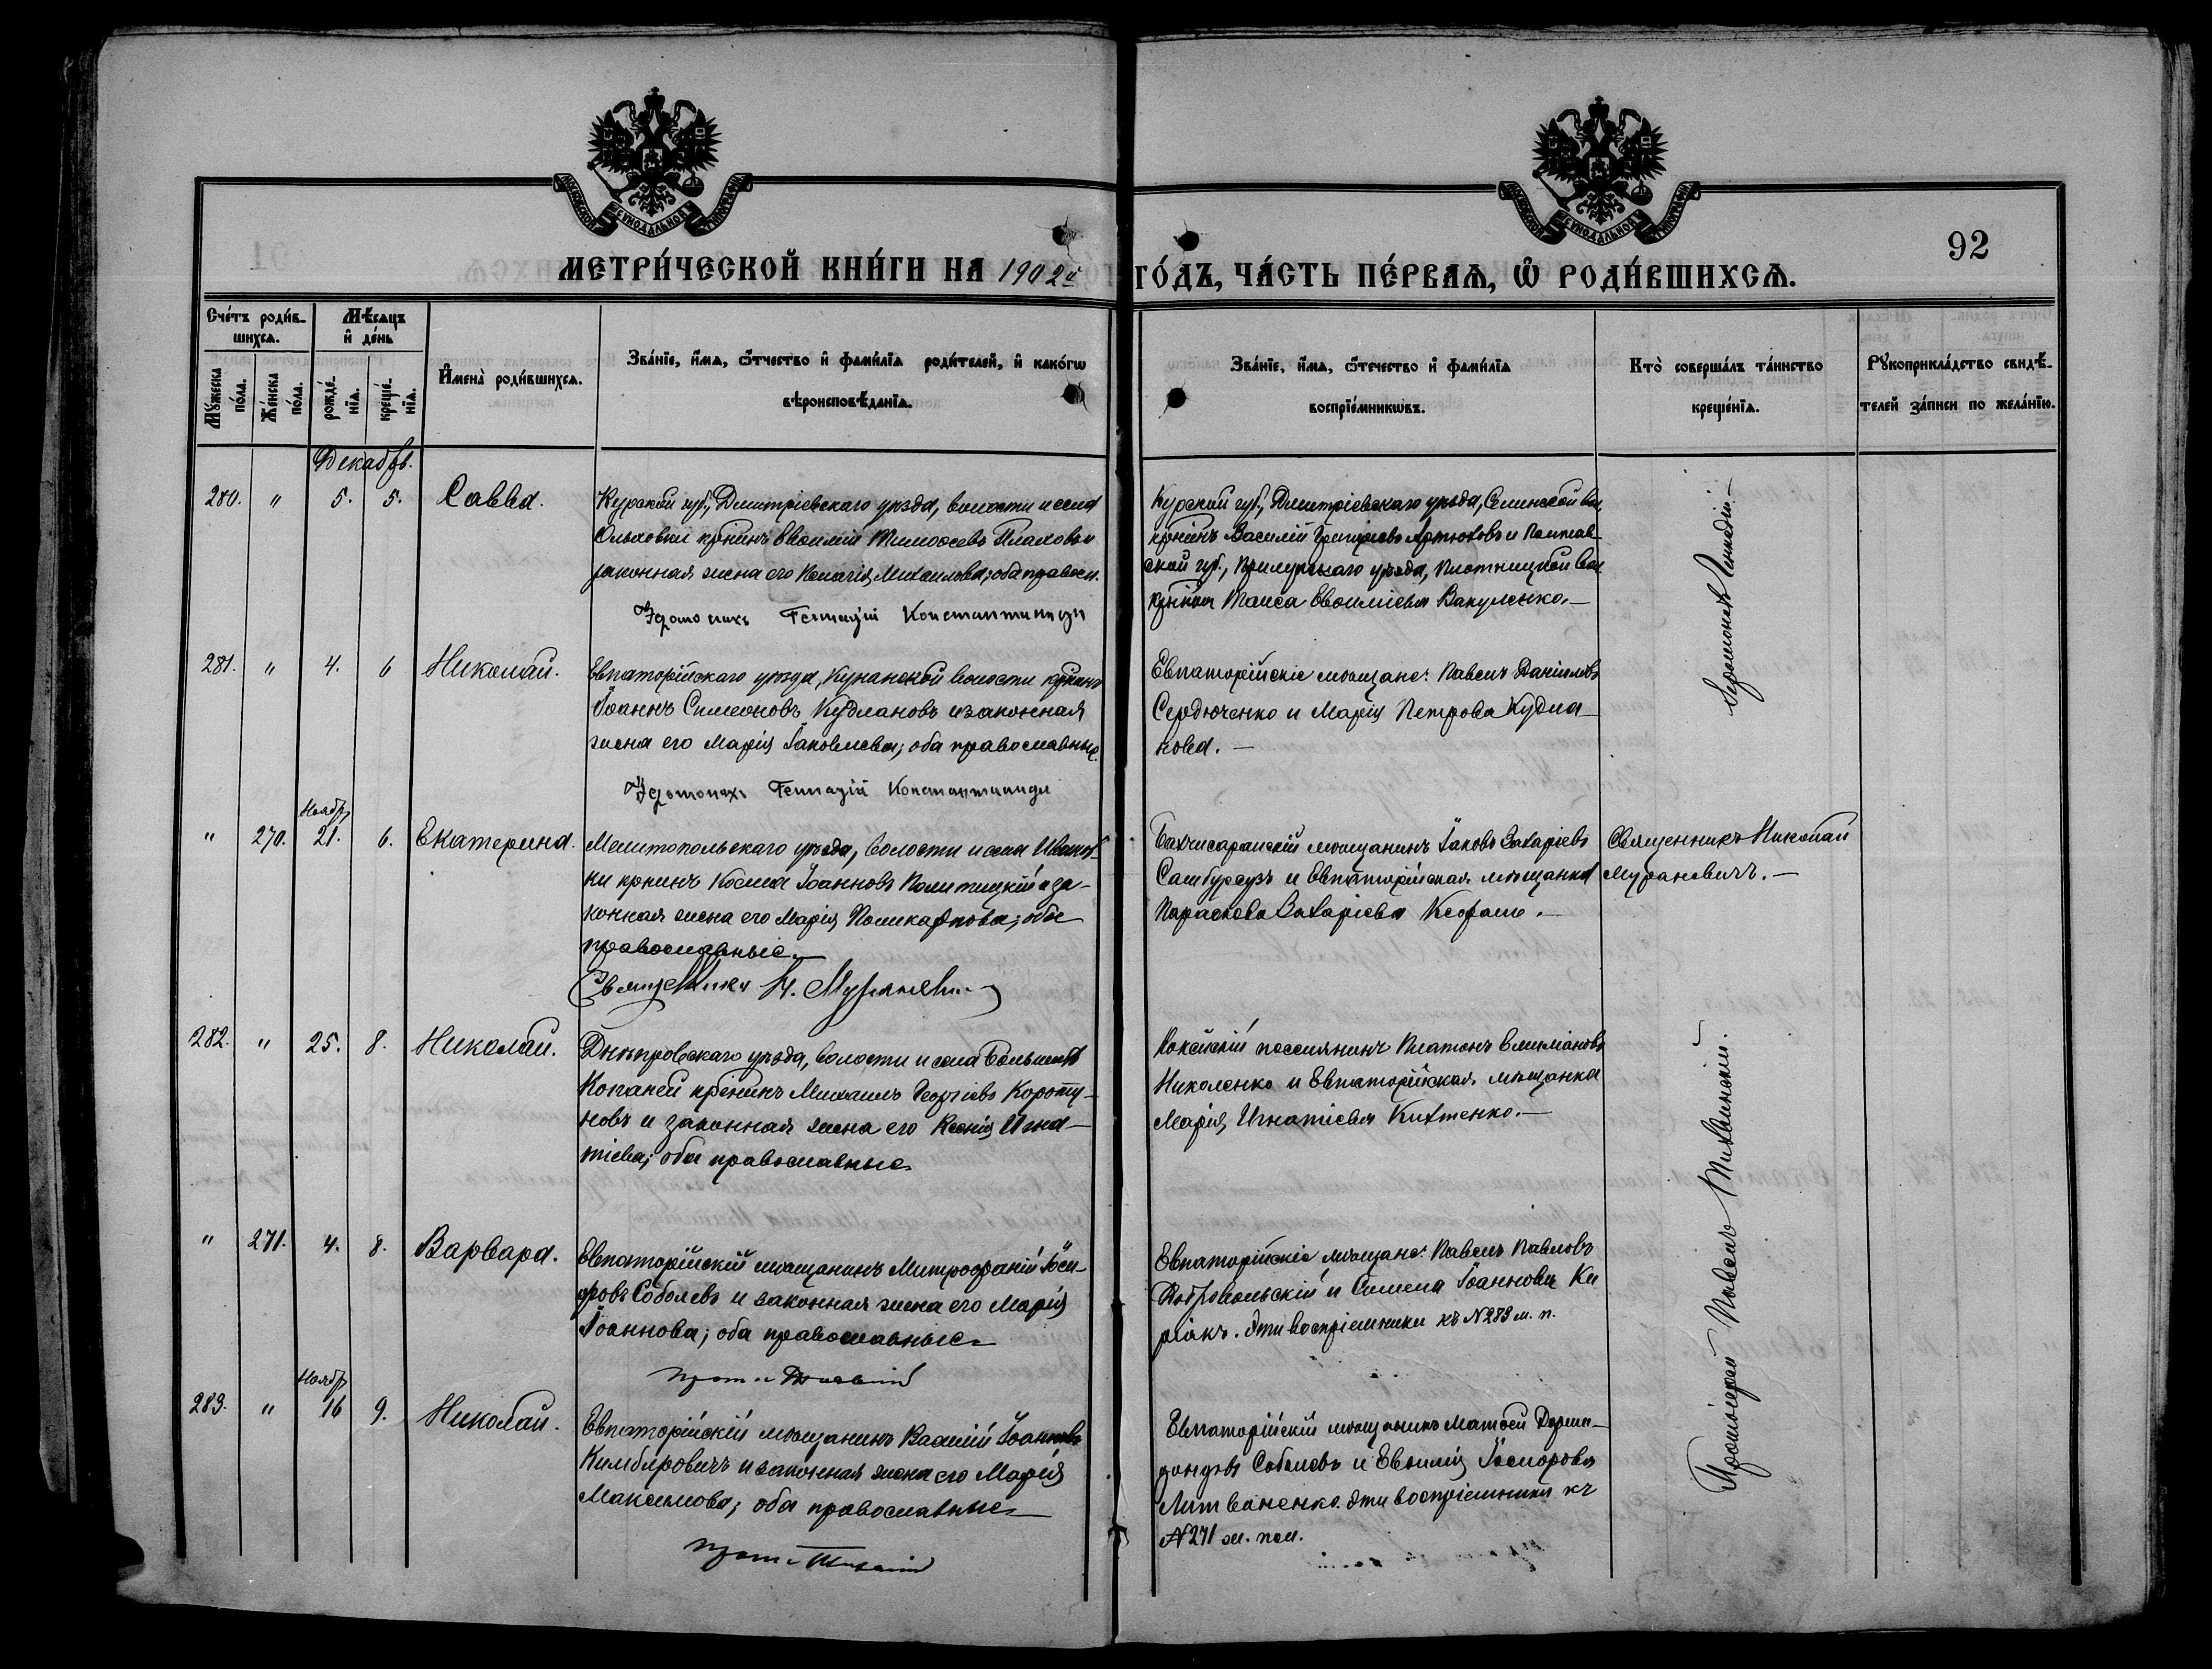 МОСКОВСКОЙ СѴНОДАЛЬНОЙ ТИПОГРАФІИ
МОСКОВСКОЙ СѴНОДАЛЬНОЙ ТИПОГРАФІИ
92
МЕТРИ́ЧЕСКОЙ КНИ́ГИ НА 1902й ГО́ДЪ, ЧА́СТЬ ПЕ́РВАѦ, Ѡ҆ РОДИ́ВШИХСѦ.
Сче́тъ роди́в-
шихсѧ.
Мѣ́сѧцъ
и҆ де́нь
Мꙋ́жеска
по́ла.
Же́нска
по́ла.
рожде́-
нїѧ.
креще́-
нїѧ.
И҆мена̀ роди́вшихсѧ.
Зва́нїе, и҆́мѧ, ѻ҆́тчество и҆ фами́лїѧ роди́телей, и҆ како́гѡ
вѣроисповѣ́данїѧ.
Зва́нїе, и҆́мѧ, ѻ҆́течество и҆ фами́лїѧ
воспрїе́мникѡвъ.
Кто̀ соверша́лъ та́инство
креще́нїѧ.
Рꙋкоприкла́дство свидѣ́-
телей за́писи по жела́нїю.
Декабрь.
280. " 5. 5. Савва.
Курской губ., Дмитріевскаго уѣзда, волости и села
Ольховки крѣнинъ Ѳвоимій Тимоѳеевъ Плаховъ и
законная жена его Пелагія Михаилова; оба правосл.
Іеромонахъ Геннадій Константиниди
Курской губ., Дмитріевскаго уѣзда, Селинской вол.
крѣнинъ Василій Григоріевъ Артюховъ и Полтав-
ской губ., Прилукскаго уѣзда, вол.
Таиса Евѳиміева Вакуленко.—
Іеромонахъ Геннадій.—
281. " 4. 6 Николай.
Евпаторійскаго уѣзда, Кунанской волости крѣнинъ
Іоаннъ Симеоновъ Кудлановъ и законная
жена его Марія Іаковлева; оба православные.
Іеромонахъ Геннадій Константиниди
Евпаторійскіе мѣщане: Павелъ Даніиловъ
Сердюченко и Марія Петрова Кудла-
нова.—
Ноябрь
" 270. 21. 6. Екатерина.
Мелитопольскаго уѣзда, волости и села Иванов-
ки крнинъ Косма Іоанновъ Политицкій и за-
конная жена его Марія Поликарпова; оба
православные.—
Священникъ Н. Мураневичъ
Бахчисарайскій мѣщанинъ Іаковъ Захаріевъ
и Евпаторійская мѣщанка
Параскева Захаріева.—
Священникъ Николай
Мураневичъ.—
282. " 25. 8. Николай.
Днѣпровскаго уѣзда, волости и села Большихъ
Копаней крѣнинъ Михаилъ Георгіевъ Короту-
новъ и законная жена его Ксенія Игна-
тіева; оба православные
поселянинъ Платонъ Емиліановъ
Николенко и Евпаторійская мѣщанка
Марія Игнатіева Кихтенко.—
Протоіерей Павелъ Тихвинскій.
" 271. 4. 8. Варвара.
Евпаторійскій мѣщанинъ Митрофаній Іоси-
фовъ Соболевъ и законная жена его Марія
Іоаннова; оба православные
Евпаторійскіе мѣщане: Павелъ Павловъ
Добровольскій и Іоаннова Ки
ріакъ. Эти воспріемники къ №283 м. п.
Ноябрь
283. " 16 9. Николай.
Евпаторійскій мѣщанинъ Василій Іоанновъ
Кимбяровичъ и законная жена его Марія
Максимова; оба православные
Евпаторійскій мѣщанинъ Матѳей Дорми-
донтовъ Соболевъ и Евѳимія Іосифова
Литвиненко. Эти воспріемники къ
№271 ж. пол.